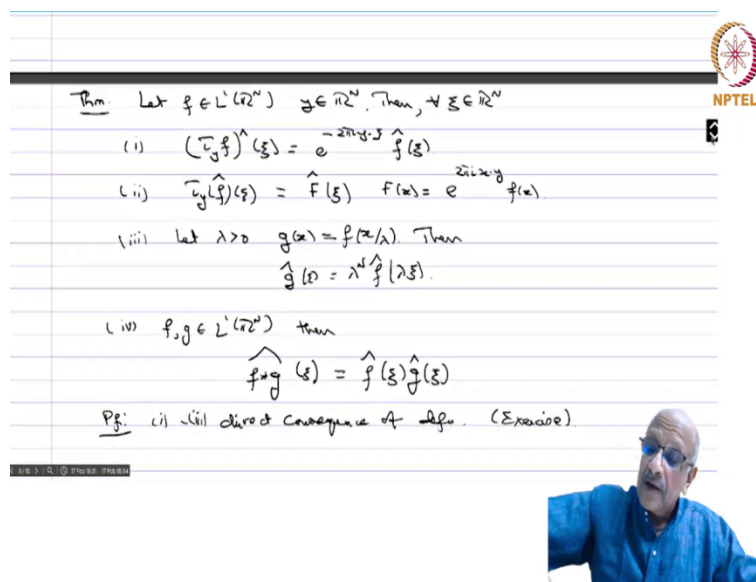 NPTEL
Thm. Let f ∈ L¹(ℝᴺ) y ∈ ℝᴺ. Then, ∀ ξ ∈ ℝᴺ
(i) (τ_y f)^(ξ) = e^{-2πiy·ξ} f̂(ξ)
(ii) τ_y(f̂)(ξ) = F̂(ξ) F(x) = e^{2πix·y} f(x).
(iii) Let λ>0 g(x) = f(x/λ). Then
ĝ(ξ) = λᴺ f̂(λξ).
(iv) f, g ∈ L¹(ℝᴺ) then
\widehat{f*g}(ξ) = f̂(ξ) ĝ(ξ)
Pf: (i) - (iii) direct consequence of defn. (Exercise).
17 Feb 18:31 17 Feb 18:54